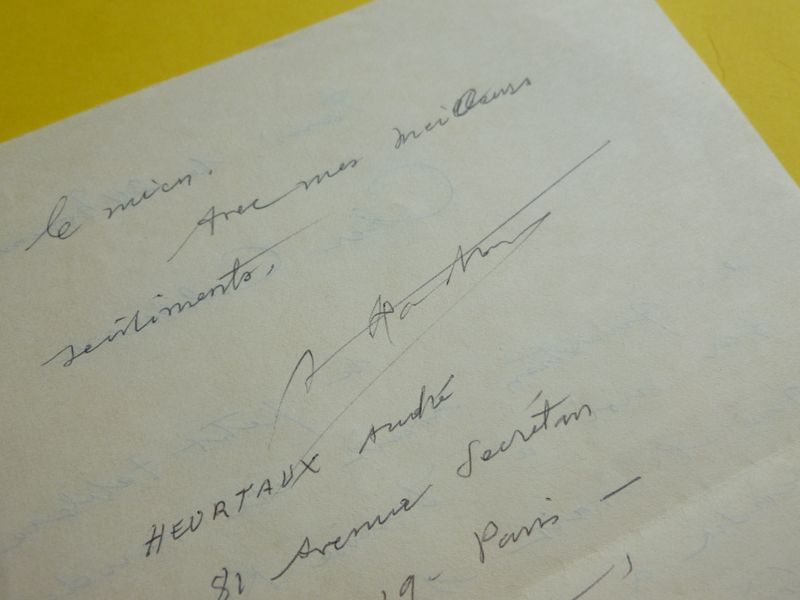 le mien.
Avec mes meilleurs
sentiments,
HEURTAUX André
81 Avenue Secrétan
19 - Paris -